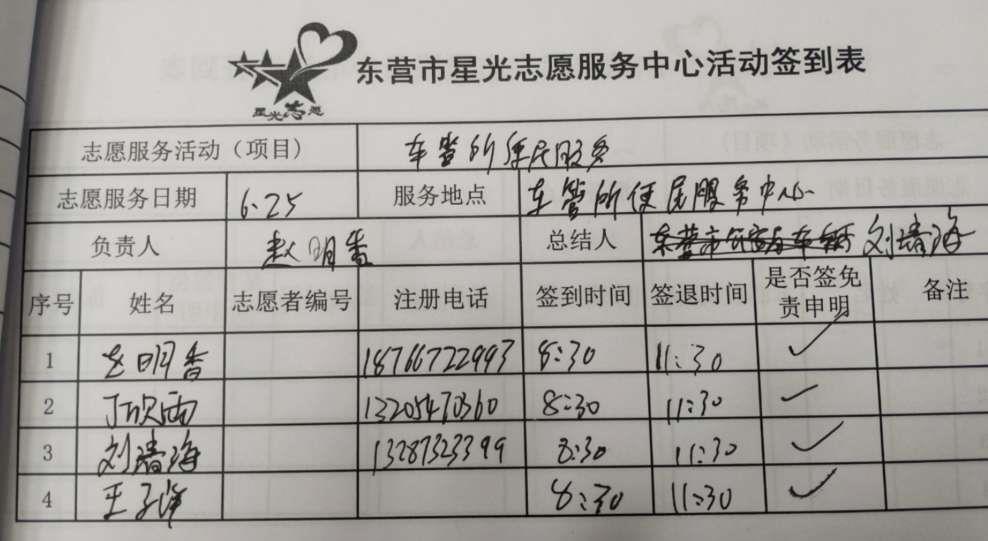 星光志愿
东营市星光志愿服务中心活动签到表
志愿服务活动（项目） 车管所便民服务
志愿服务日期 6.25 服务地点 车管所便民服务中心
负责人 赵明香 总结人 刘清海
序号 姓名 志愿者编号 注册电话 签到时间 签退时间 是否签免责申明 备注
1 赵明香 18766722993 8:30 11:30 ✓
2 丁欣雨 13205470360 8:30 11:30 ✓
3 刘清海 13287323399 8:30 11:30 ✓
4 王子 8:30 11:30 ✓